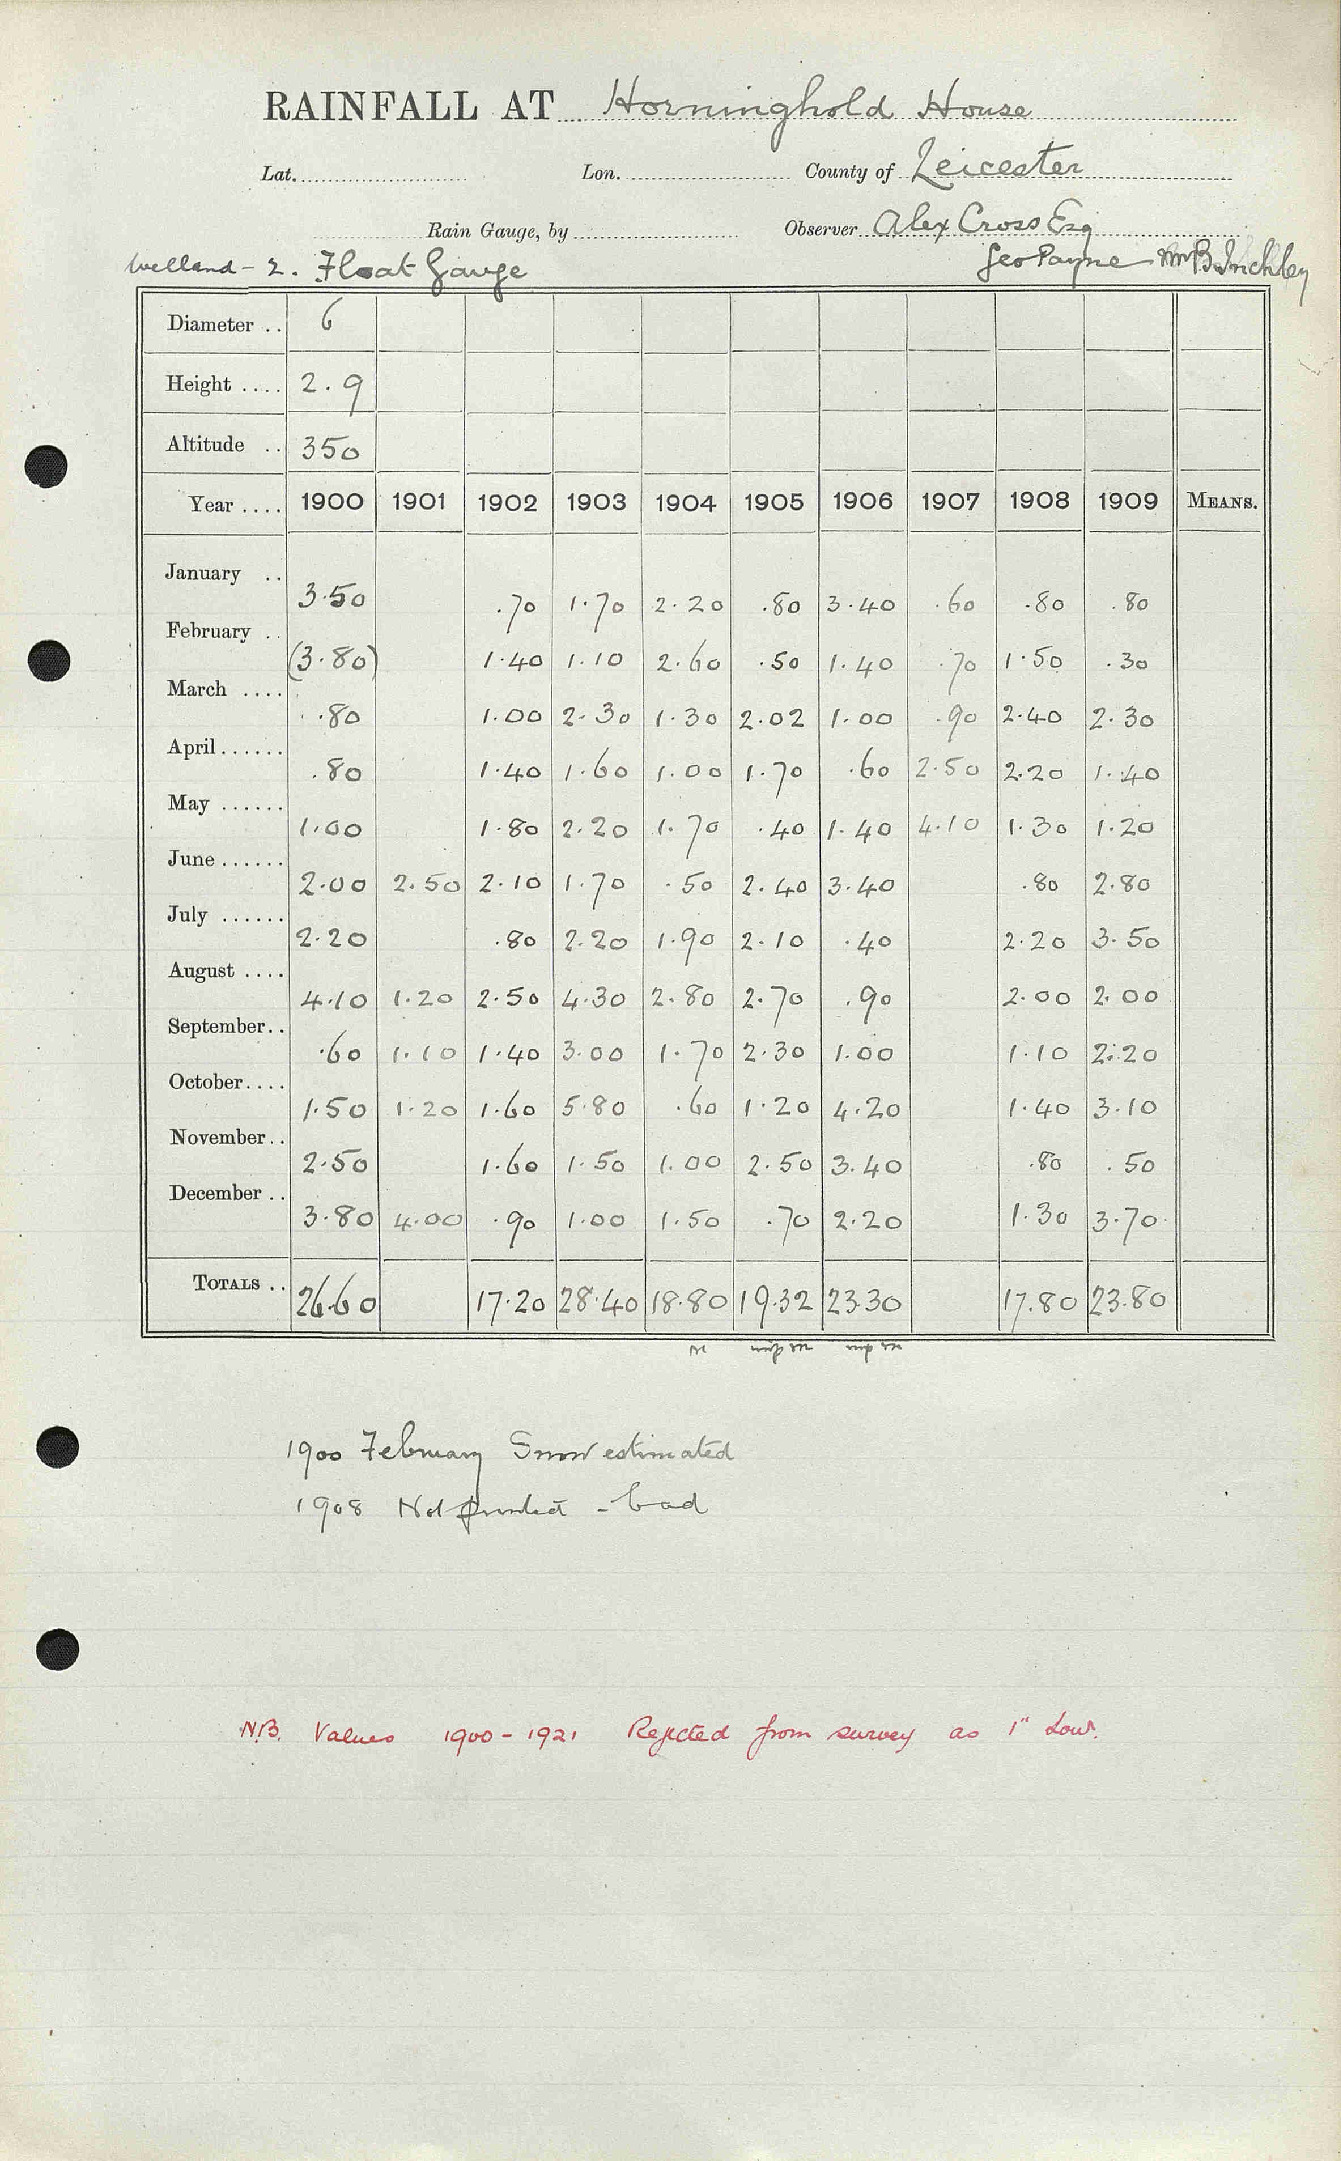 RAINFALL AT Horninghold House
Lat. Lon. County of Leicester
Rain Gauge, by Observer Alex Cross Esq
Welland - 2. Float Gauge Geo Payne Wm B. Inchley
Diameter .. 6
Height .... 2.9
Altitude .. 350
Year .... 1900 1901 1902 1903 1904 1905 1906 1907 1908 1909 MEANS.
January .. 3.50 .70 1.70 2.20 .80 3.40 .60 .80 .80
February .. (3.80) 1.40 1.10 2.60 .50 1.40 .70 1.50 .30
March .... .80 1.00 2.30 1.30 2.02 1.00 .90 2.40 2.30
April ...... .80 1.40 1.60 1.00 1.70 .60 2.50 2.20 1.40
May ...... 1.00 1.80 2.20 1.70 .40 1.40 4.10 1.30 1.20
June ...... 2.00 2.50 2.10 1.70 .50 2.40 3.40 .80 2.80
July ...... 2.20 .80 2.20 1.90 2.10 .40 2.20 3.50
August .... 4.10 1.20 2.50 4.30 2.80 2.70 .90 2.00 2.00
September.. .60 1.10 1.40 3.00 1.70 2.30 1.00 1.10 2.20
October.... 1.50 1.20 1.60 5.80 .60 1.20 4.20 1.40 3.10
November.. 2.50 1.60 1.50 1.00 2.50 3.40 .80 .50
December .. 3.80 4.00 .90 1.00 1.50 .70 2.20 1.30 3.70
TOTALS .. 26.60 17.20 28.40 18.80 19.32 23.30 17.80 23.80
1900 February Snow estimated
1908 Not printed - bad
N.B. Values 1900 - 1921 Rejected from survey as 1" Low.